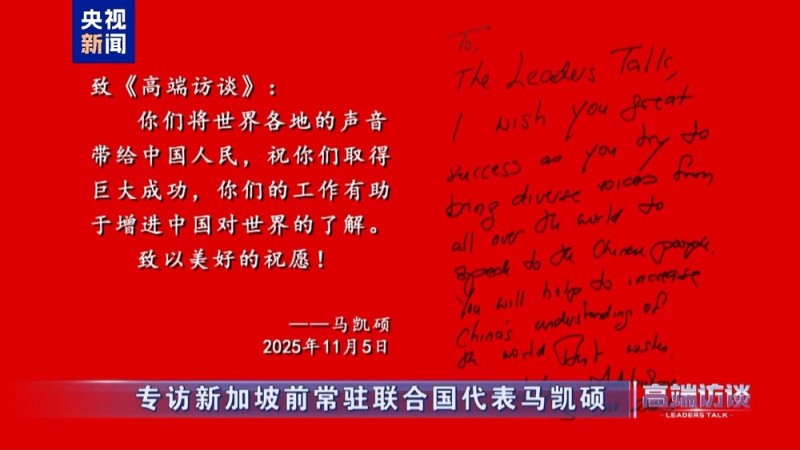 央视
新闻
致《高端访谈》:
你们将世界各地的声音
带给中国人民,祝你们取得
巨大成功,你们的工作有助
于增进中国对世界的了解。
致以美好的祝愿!
——马凯硕
2025年11月5日
To,
The Leaders Talk,
I wish you great
success as you try to
bring diverse voices from
all over the world to
speak to the Chinese people.
You will help to increase
China's understanding of
the world. Best wishes,
专访新加坡前常驻联合国代表马凯硕
高端访谈
LEADERS TALK